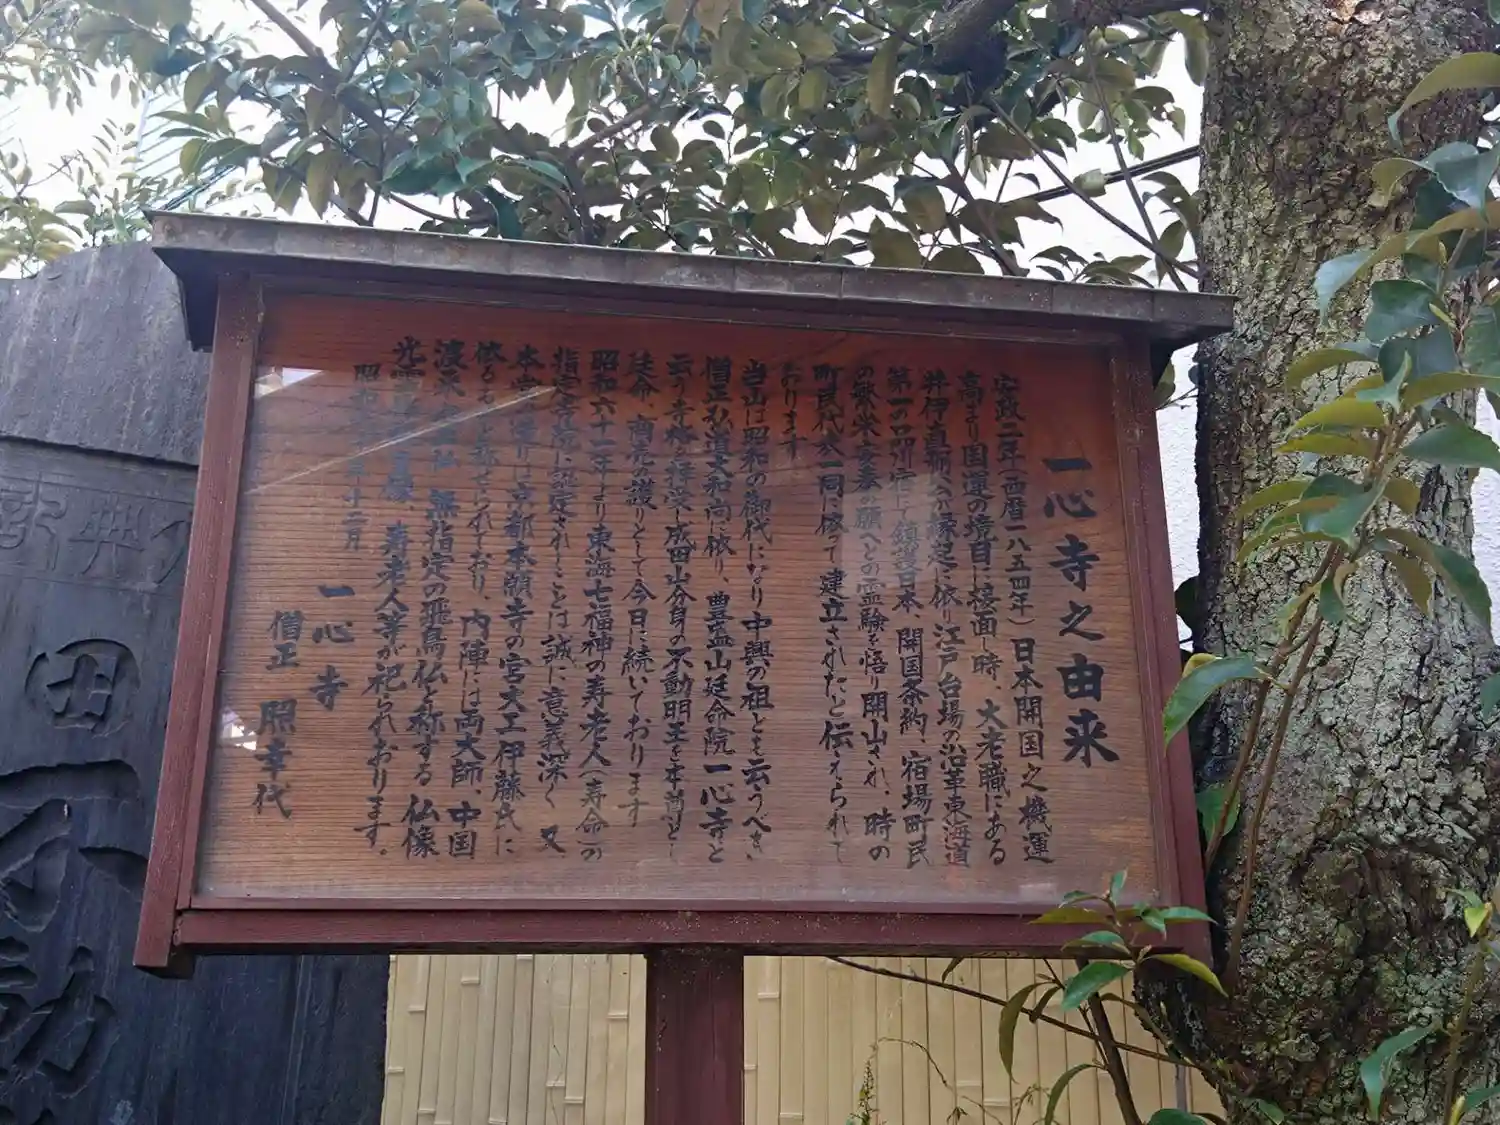 一心寺之由来
安政二年(西暦一八五四年)日本開国之機運
高まり国運の境目に接面し時、大老職にある
井伊直弼公の縁起に依り江戸台場の沿革東海道
第一の品川宿にて鎮護日本、開国条約、宿場町民
の繁栄安泰の願へとの霊験を悟り開山され、時の
町民代表一同に依って建立されたと伝えられて
おります
当山は昭和の御代になり中興の祖とも云うべき
僧正弘道大和尚に依り、豊盛山延命院一心寺と
云う寺格を拝受、成田山分身の不動明王を本尊とし
延命、商売の護りとして今日に続いております
昭和六十一年より東海七福神の寿老人(寿命)の
指定寺院に認定されしことは誠に意義深く 又、
本堂の造りは京都本願寺の宮大工伊藤氏に
依るものと称せられており、内陣には両大師、中国
渡来 無指定の飛鳥仏と称する仏像
光 寿老人等が祀られおります。
昭和 年十二月
一心寺
僧正 照幸代
田
不
動